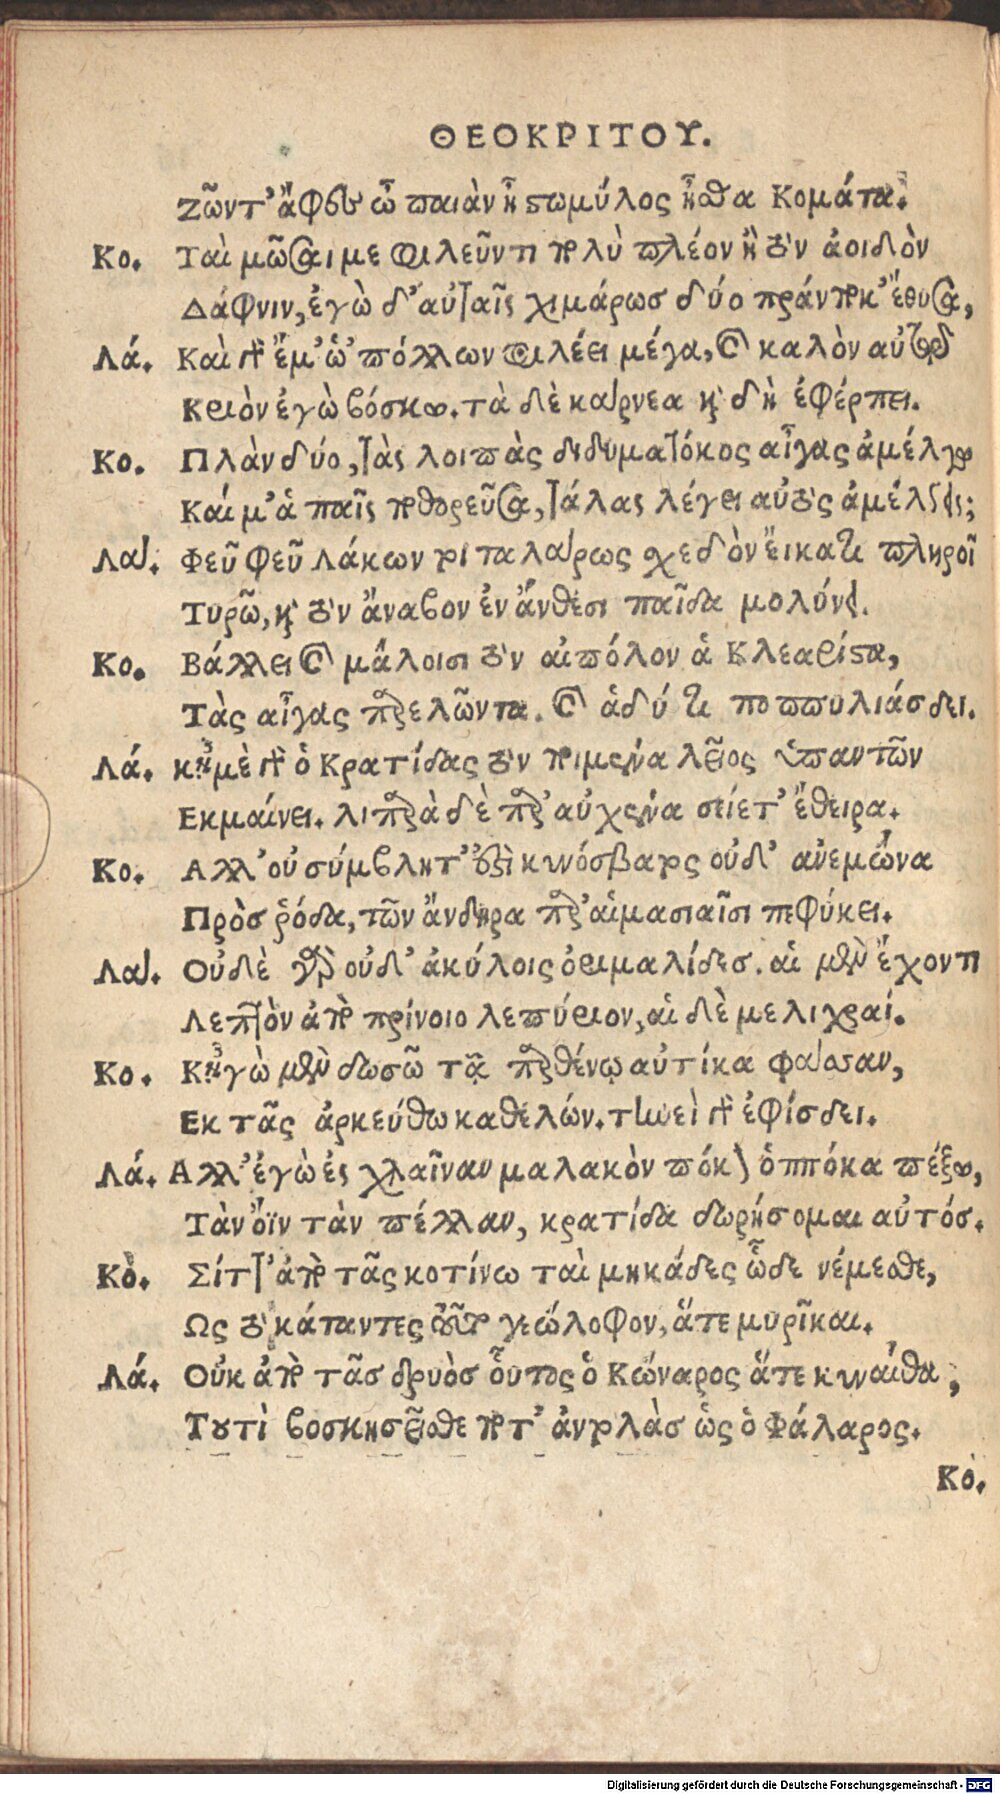 ΘΕΟΚΡΙΤΟΥ.
Ζῶντ' ἄφες ὦ παιὰν ἦ στωμύλος ἦσθα Κομάτα.
Κο. Ταὶ μῶσαί με φιλεῦντι πολὺ πλέον ἢ τὸν ἀοιδὸν
Δάφνιν, ἐγὼ δ' αὐταῖς χιμάρως δύο πράν ποκ' ἔθυσα,
Λά. Καὶ γὰρ ἔμ' ὡ' πόλλων φιλέει μέγα, καὶ καλὸν αὐτῷ
Κριὸν ἐγὼ βόσκω. τὰ δὲ κάρνεα καὶ δὴ ἐφέρπει.
Κο. Πλὰν δύο, τὰς λοιπὰς διδυματόκος αἶγας ἀμέλγω
Καί μ' ἁ παῖς ποθορεῦσα, τάλας λέγει αὐτὸς ἀμέλγεις;
Λά. Φεῦ φεῦ Λάκων τοι ταλάρως σχεδὸν εἴκατι πληροῖ
Τυρῶ, καὶ τὸν ἄναβον ἐν ἄνθεσι παῖδα μολύνει.
Κο. Βάλλει καὶ μάλοισι τὸν αἰπόλον ἁ Κλεαρίστα,
Τὰς αἶγας παρελῶντα. καὶ ἁδύ τι ποππυλιάσδει.
Λά. κἠμὲ γὰρ ὁ Κρατίδας τὸν ποιμένα λεῖος ὑπαντῶν
Εκμαίνει. λιπαρὰ δὲ παρ' αὐχένα σείετ' ἔθειρα.
Κο. Αλλ' οὐ σύμβλητ' ἐστὶ κυνόσβατος οὐδ' ἀνεμώνα
Πρὸς ῥόδα, τῶν ἄνδηρα παρ' αἱμασιαῖσι πεφύκει.
Λά. Οὐδὲ γὰρ οὐδ' ἀκύλοις ὀριμαλίδες. αἱ μὲν ἔχοντι
Λεπτὸν ἀπὸ πρίνοιο λεπύριον, αἱ δὲ μελιχραί.
Κο. Κἠγὼ μὲν δωσῶ τᾷ παρθένῳ αὐτίκα φάσσαν,
Εκ τᾶς ἀρκεύθω καθελών. τηνεὶ γὰρ ἐφίσδει.
Λά. Αλλ' ἐγὼ ἐς χλαῖναν μαλακὸν πόκον ὁππόκα πέξω,
Τὰν ὄϊν τὰν πέλλαν, κρατίδα δωρήσομαι αὐτός.
Κο. Σίττ' ἀπὸ τᾶς κοτίνω ταὶ μηκάδες ὧδε νέμεσθε,
Ως τὸ κάταντες τοῦτο γεώλοφον, ἅτε μυρῖκαι.
Λά. Οὐκ ἀπὸ τᾶς δρυὸς οὗτος ὁ Κώναρος ἅτε κυναίθα,
Τουτὶ βοσκησεῖσθε ποτ' ἀντολὰς ὡς ὁ Φάλαρος.
Κο.
Digitalisierung gefördert durch die Deutsche Forschungsgemeinschaft - DFG